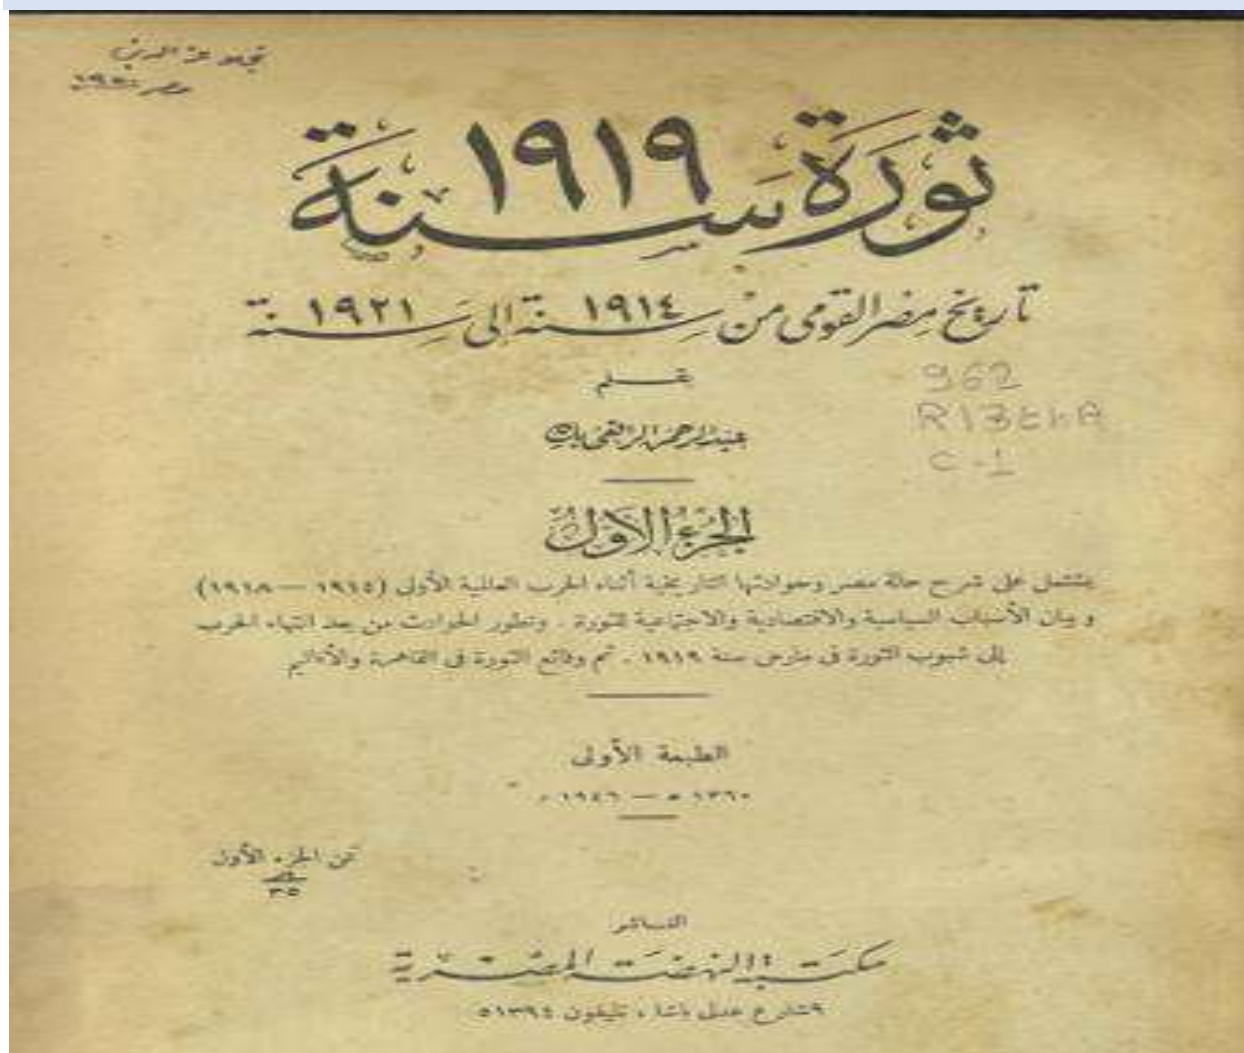 ثورة سنة ١٩١٩
تاريخ مصر القومى من سنة ١٩١٤ إلى سنة ١٩٢١
بقلم
عبد الرحمن الرافعى بك
962
R136thA
C-1
الجزء الأول
يشتمل على شرح حالة مصر وحوادثها التاريخية أثناء الحرب العالمية الأولى (١٩١٤ — ١٩١٨)
وبيان الأسباب السياسية والاقتصادية والاجتماعية للثورة . وتطور الحوادث من بعد انتهاء الحرب
إلى شبوب الثورة فى مارس سنة ١٩١٩ . ثم وقائع الثورة فى القاهرة والأقاليم
الطبعة الأولى
١٣٦٠ ه — ١٩٤٦ م
ثمن الجزء الأول
٣٥
الناشر
مكتبة النهضة المصرية
٩ شارع عدلى باشا ، تليفون ٥١٣٩٤